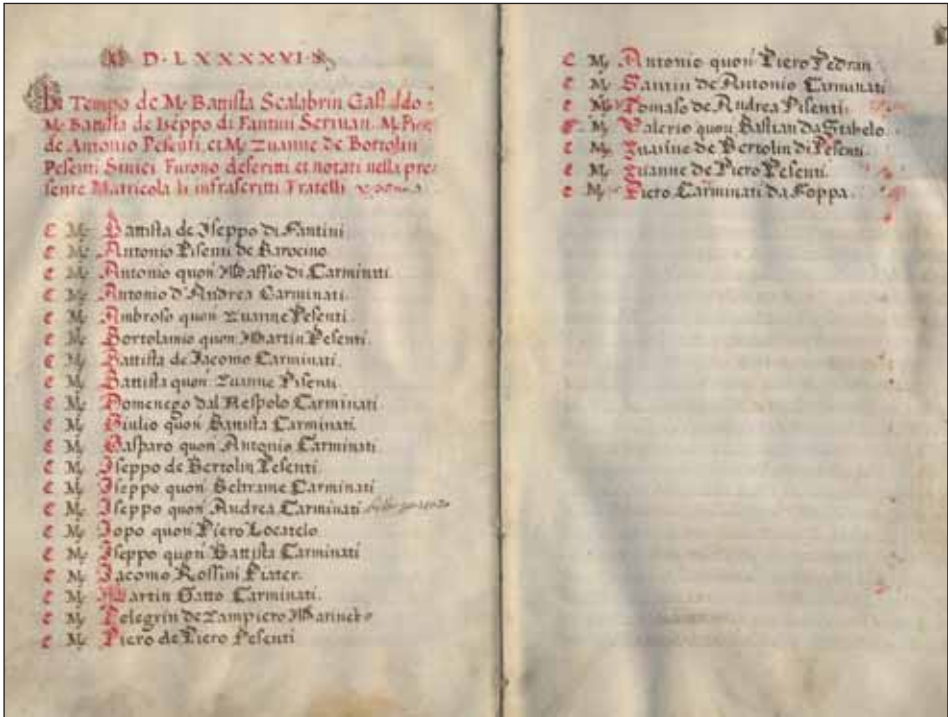 M D · L X X X X V I
In Tempo de Mr Battista Scalabrin Gastaldo
Mr Battista de Iseppo di Fantini Scrivan. Mr Piero
de Antonio Pesenti et Mr Zuanne de Bortolin
Pesenti Sinici Furono descritti et notati nella pre-
sente Matricola li infrascritti Fratelli
C Mr Battista de Iseppo di Fantini
C Mr Antonio Pisenti de Barocino
C Mr Antonio quon Maffio di Carminati.
C Mr Antonio d'Andrea Carminati.
C Mr Ambroso quon Zuanne Pesenti.
C Mr Bortolamio quon Martin Pesenti.
C Mr Battista de Jacomo Carminati.
C Mr Battista quon Zuanne Pisenti
C Mr Domenego dal Nespolo Carminati
C Mr Giulio quon Battista Carminati
C Mr Gasparo quon Antonio Carminati.
C Mr Iseppo de Bertolin Pesenti.
C Mr Iseppo quon Beltrame Carminati
C Mr Iseppo quon Andrea Carminati
C Mr Jopo quon Piero Locatelo
C Mr Iseppo quon Battista Carminati
C Mr Jacomo Rossini Piater.
C Mr Martin Gatto Carminati.
C Mr Pelegrin de Zampiero
C Mr Piero de Piero Pesenti
C Mr Antonio quon Piero Pedran
C Mr Santin de Antonio Carminati
C Mr Tomaso de Andrea Pisenti.
C Mr Valerio quon Bastian da Stabelo.
C Mr Zuanne de Bertolin di Pesenti.
C Mr Zuanne de Piero Pesenti.
C Mr Piero Carminati da Foppa.